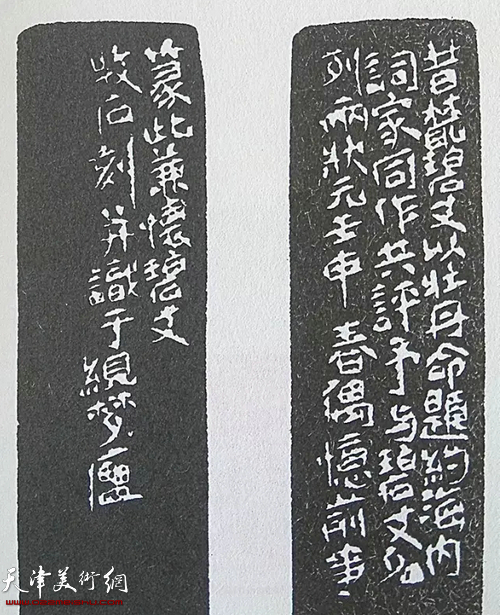 昔梦碧丈以牡丹命題約海内
詞家同作共評予与碧丈分
列兩狀元壬申春偶憶前事
篆此兼懷碧丈
牧石刻并識于絸梦廬
天津美術網